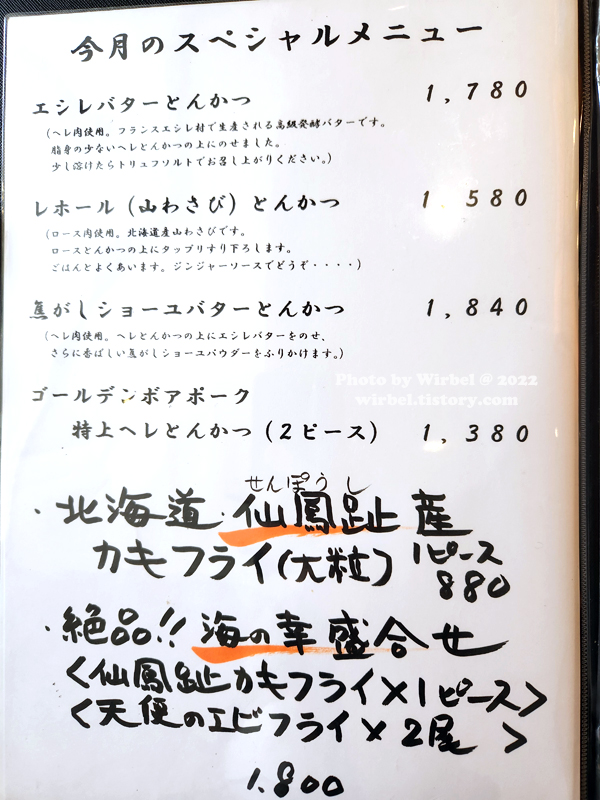 今月のスペシャルメニュー
エシレバターとんかつ 1,780
(ヘレ肉使用。フランスエシレ村で生産される高級発酵バターです。
脂身の少ないヘレとんかつの上にのせました。
少し溶けたらトリュフソルトでお召し上がりください。)
レホール（山わさび）とんかつ 1,580
(ロース肉使用。北海道産山わさびです。
ロースとんかつの上にタップリすり下ろします。
ごはんとよくあいます。ジンジャーソースでどうぞ・・・・)
焦がしショーユバターとんかつ 1,840
(ヘレ肉使用。ヘレとんかつの上にエシレバターをのせ、
さらに香ばしい焦がしショーユパウダーをふりかけます。)
Photo by Wirbel @ 2022
wirbel.tistory.com
ゴールデンボアポーク
特上ヘレとんかつ（2ピース） 1,380
せんぽうし
・北海道・仙鳳趾産
カキフライ(大粒) 1ピース
880
・絶品!! 海の幸盛合せ
<仙鳳趾カキフライ×1ピース>
<天使のエビフライ×2尾>
1.800